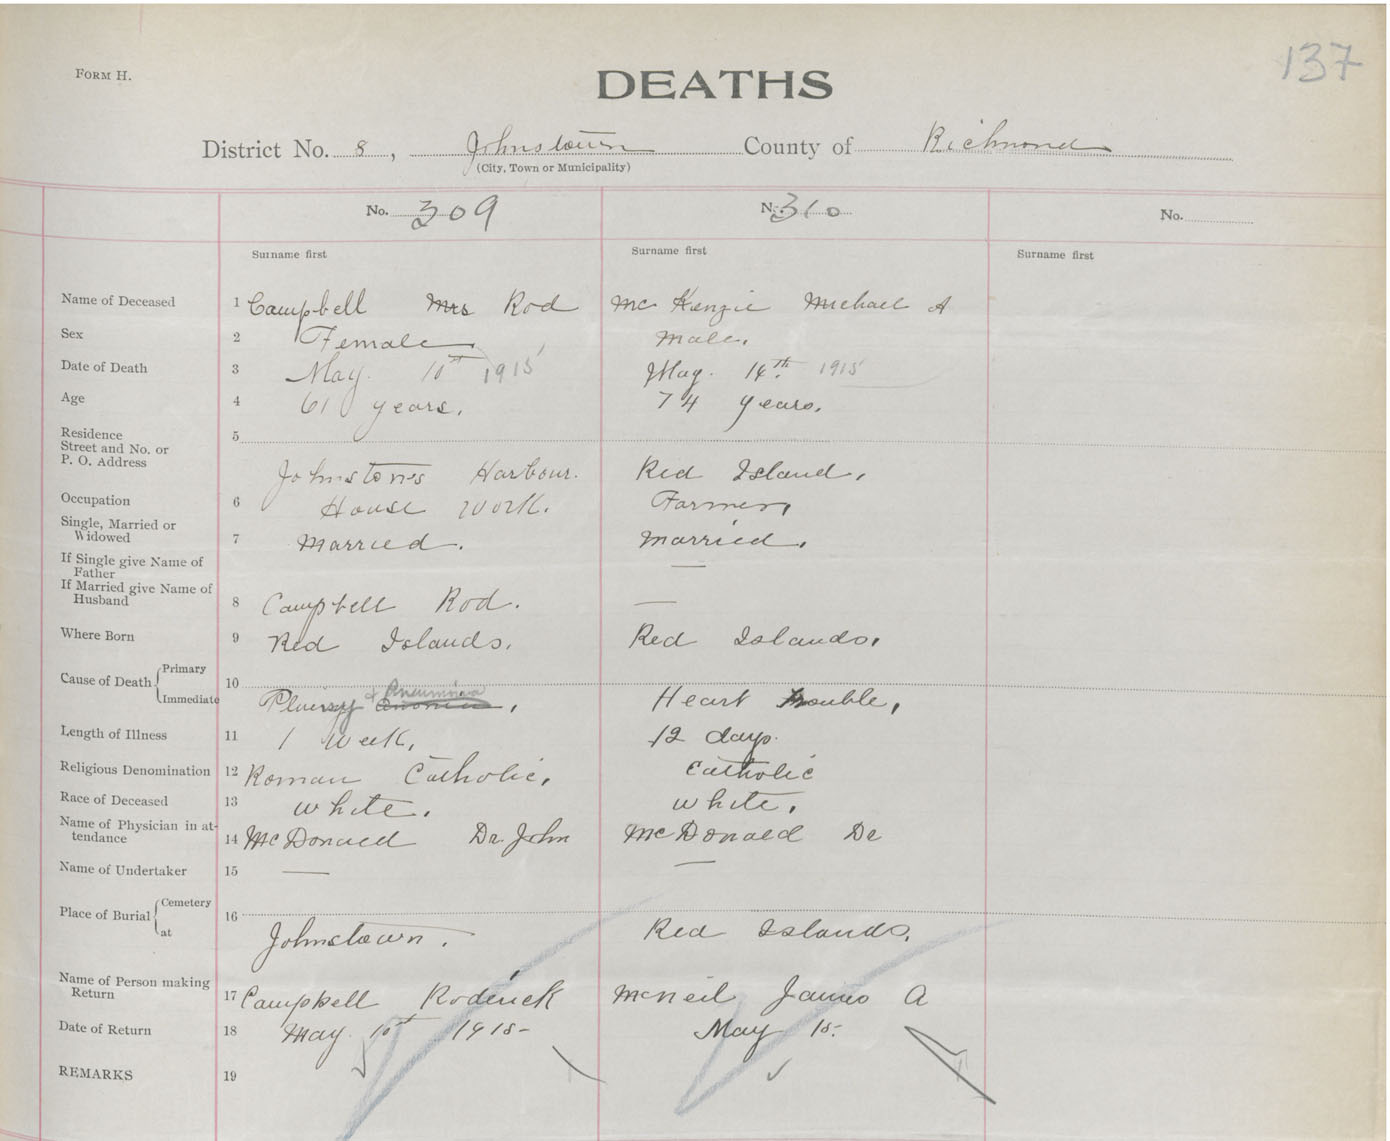 137
FORM H.
DEATHS
District No. 8, Johnstown County of Richmond
(City, Town or Municipality)
No. 309 No. 310 No.
Surname first Surname first Surname first
Name of Deceased 1 Campbell Mrs Rod McKenzie Michael A
Sex 2 Female Male.
Date of Death 3 May. 10th 1915 May. 14th 1915
Age 4 61 years. 74 years.
Residence
Street and No. or 5
P. O. Address
Johnstons Harbour. Red Island.
Occupation 6 House Work. Farmer,
Single, Married or
Widowed 7 Married. Married.
If Single give Name of
Father —
If Married give Name of
Husband 8 Campbell Rod. —
Where Born 9 Red Islands. Red Islands.
Cause of Death Primary 10
Immediate Pleurisy & Pneumonia, Heart Trouble,
Length of Illness 11 1 Week. 12 days.
Religious Denomination 12 Roman Catholic. Catholic
Race of Deceased 13 White. White.
Name of Physician in at-
tendance 14 McDonald Dr. John McDonald Dr
Name of Undertaker 15 — —
Place of Burial Cemetery 16
at Johnstown. Red Islands.
Name of Person making
Return 17 Campbell Roderick McNeil James A
Date of Return 18 May 10th 1915- May 15-
REMARKS 19